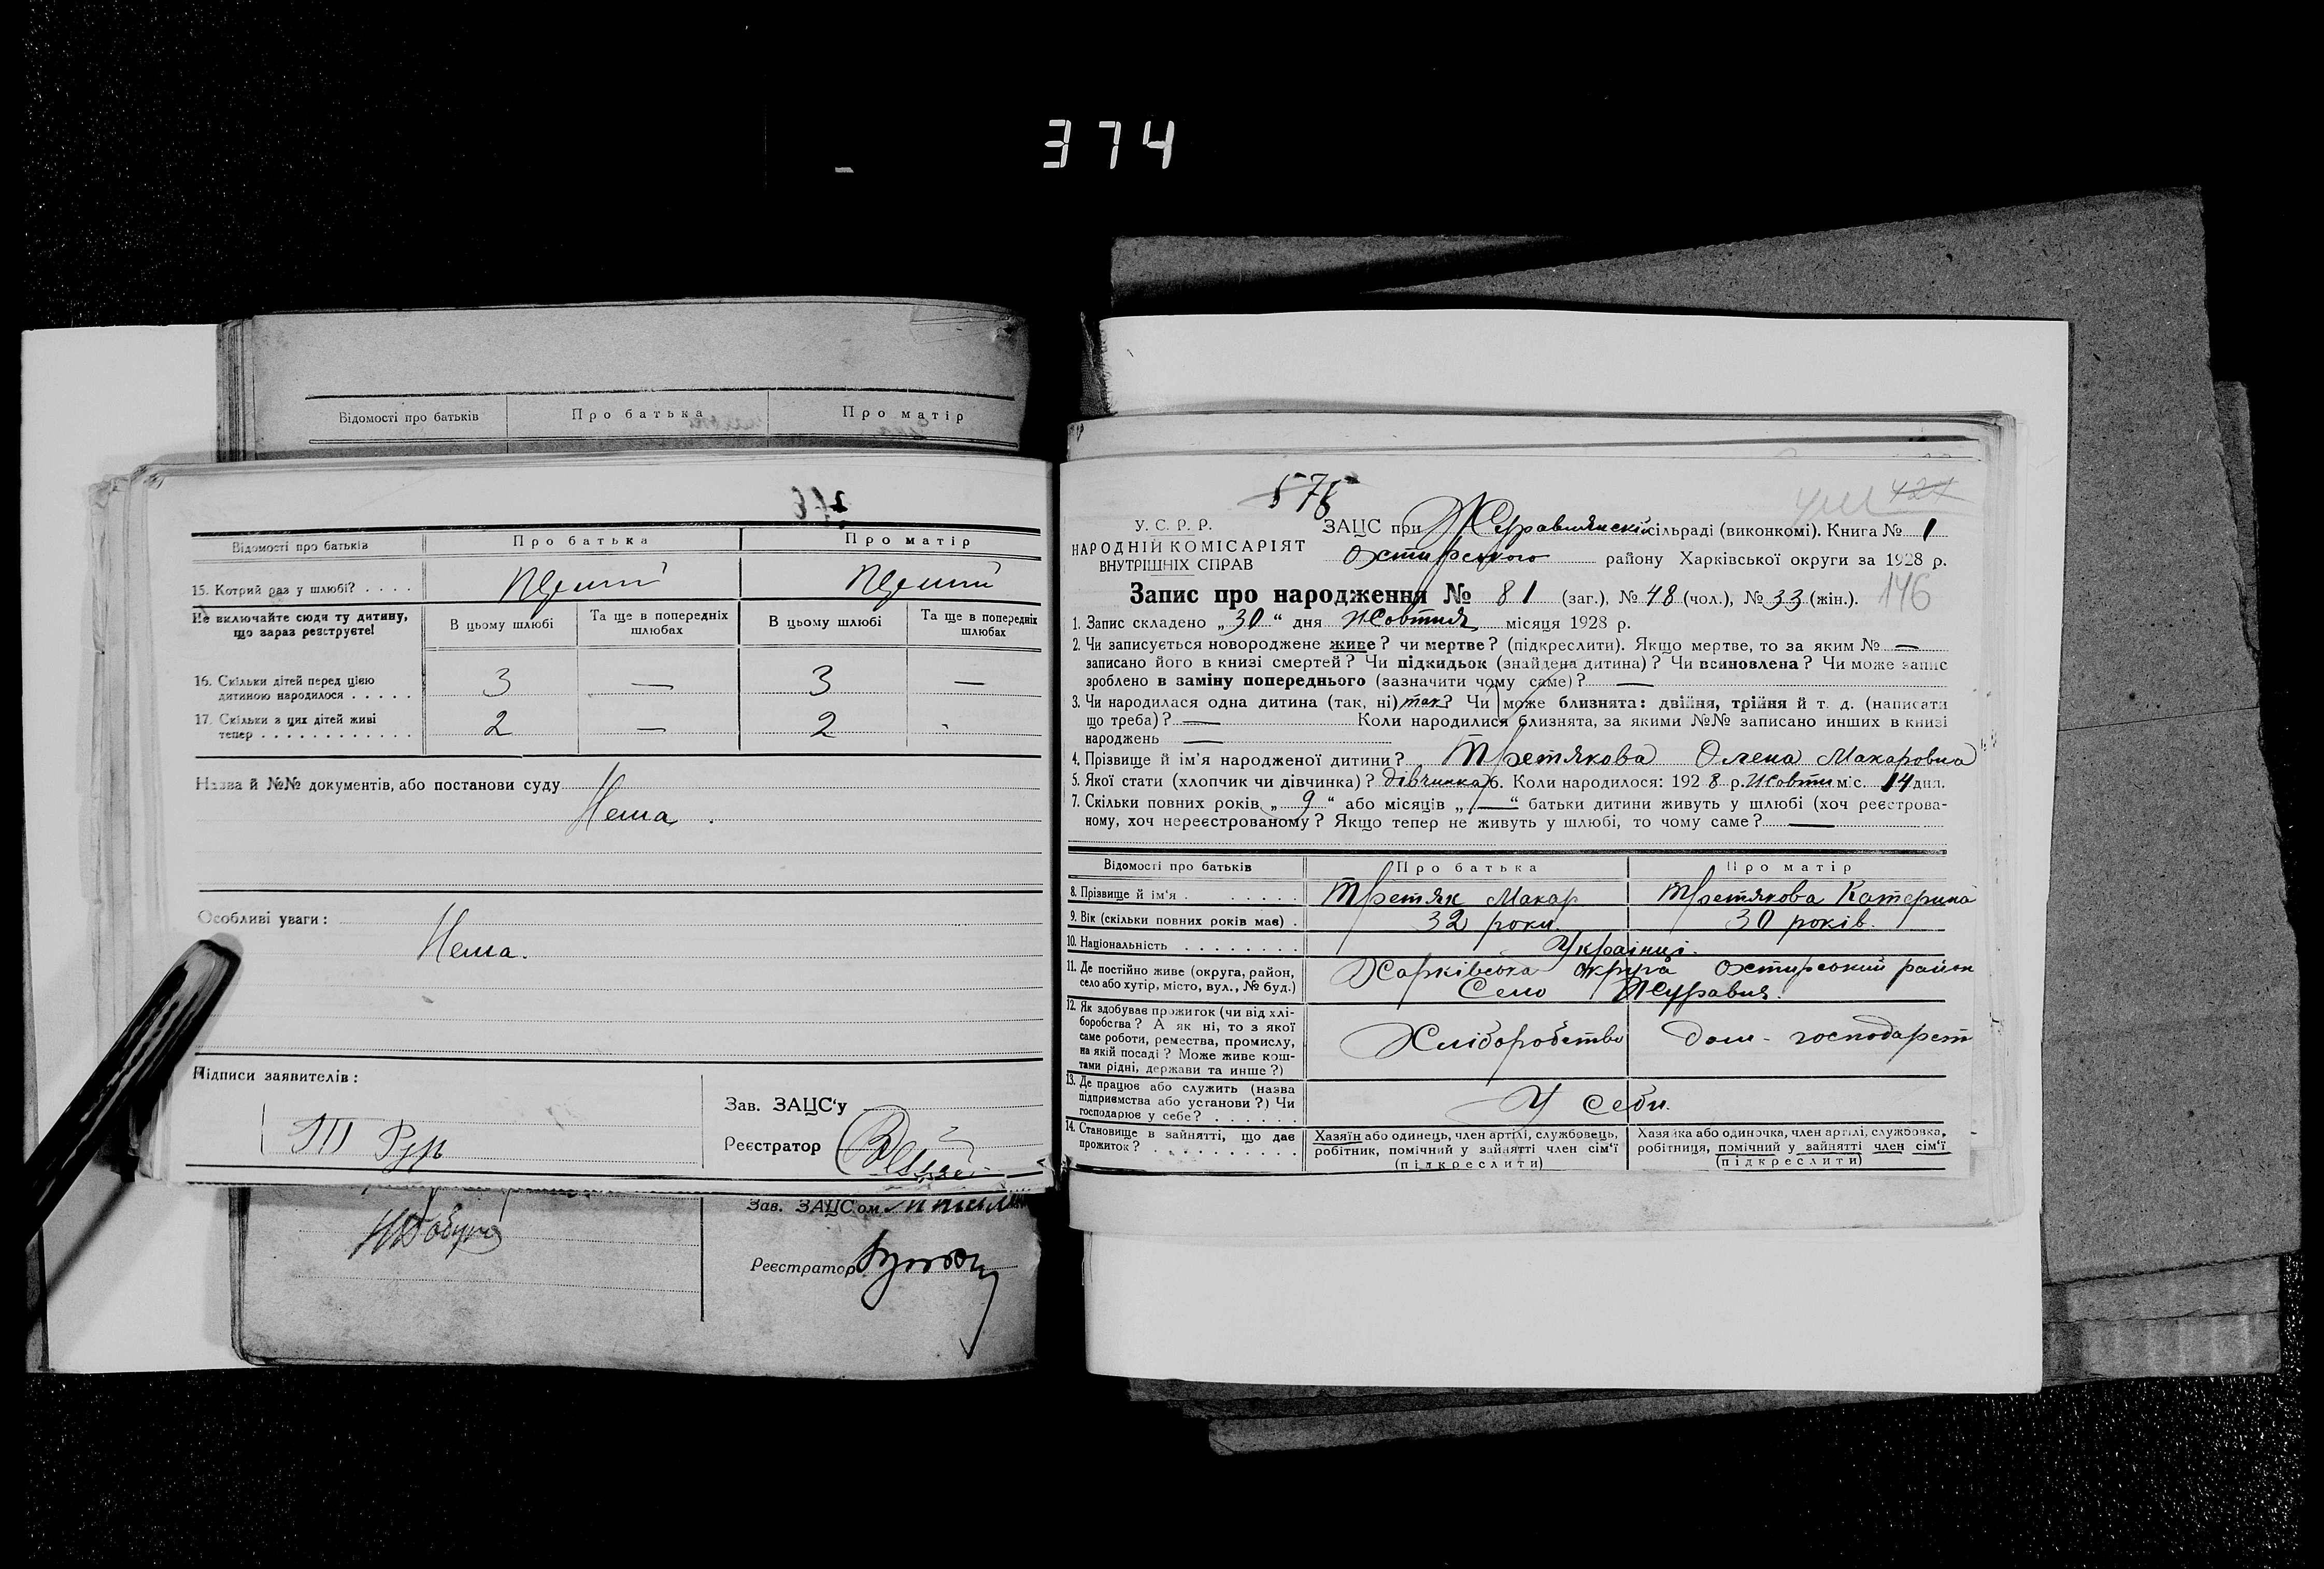 374
Відомості про батьків Про батька Про матір
Відомості про батьків Про батька Про матір
15. Котрий раз у шлюбі? . . . .
Не включайте сюди ту дитину, що зараз реєструєте!
В цьому шлюбі Та ще в попередніх шлюбах В цьому шлюбі Та ще в попередніх шлюбах
16. Скільки дітей перед цією
дитиною народилося . . . . . 3 — 3 —
17. Скільки з цих дітей живі
тепер . . . . . . . . . . . . 2 — 2 -
Назва й №№ документів, або постанови суду
Нема.
Особливі уваги:
Нема.
Підписи заявителів:
Зав. ЗАЦС'у
Реєстратор
Зав. ЗАЦСом
Реєстратор
578
424
У. С. Р. Р.
НАРОДНІЙ КОМІСАРІЯТ
ВНУТРІШНІХ СПРАВ
ЗАЦС при Журавлянскій сільраді (виконкомі). Книга № 1
Охтирського району Харківської округи за 1928 р.
Запис про народження № 81 (заг.), № 48 (чол.), № 33 (жін.). 146
1. Запис складено „30“ дня Жовтня місяця 1928 р.
2. Чи записується новороджене живе? чи мертве? (підкреслити). Якщо мертве, то за яким № —
записано його в книзі смертей? Чи підкидьок (знайдена дитина)? Чи всиновлена? Чи може запис
зроблено в заміну попереднього (зазначити чому саме)? —
3. Чи народилася одна дитина (так, ні) так? Чи може близнята: двійня, трійня й т. д. (написати
що треба)? — Коли народилися близнята, за якими №№ записано инших в книзі
народжень —
4. Прізвище й ім'я народженої дитини? Третякова Олена Макаровна
5. Якої стати (хлопчик чи дівчинка)? дівчинка 6. Коли народилося: 1928 р. Жовтн міс. 14 дня.
7. Скільки повних років „9“ або місяців „—“ батьки дитини живуть у шлюбі (хоч реєстрова-
ному, хоч нереєстрованому? Якщо тепер не живуть у шлюбі, то чому саме? —
Відомості про батьків Про батька Про матір
8. Прізвище й ім'я . . . . . . . . Третяк Макар Третякова Катерина
9. Вік (скільки повних років має) . 32 роки 30 років.
10. Національність . . . . . . . . Українці.
11. Де постійно живе (округа, район,
село або хутір, місто, вул., № буд.)
Харківська округа Охтирський район
Село Журавня.
12. Як здобуває прожиток (чи від хлі-
боробства? А як ні, то з якої
саме роботи, ремества, промислу,
на якій посаді? Може живе кош-
тами рідні, держави та инше?)
Хліборобство дом-господарст
13. Де працює або служить (назва
підприємства або установи?) Чи
господарює у себе? . . . . . .
У себи.
14. Становище в зайнятті, що дає
прожиток? . . . . . . . . . .
Хазяїн або одинець, член артілі, службовець,
робітник, помічний у зайнятті член сім'ї
(підкреслити)
Хазяйка або одиночка, член артілі, службовка,
робітниця, помічний у зайнятті член сім'ї
(підкреслити)